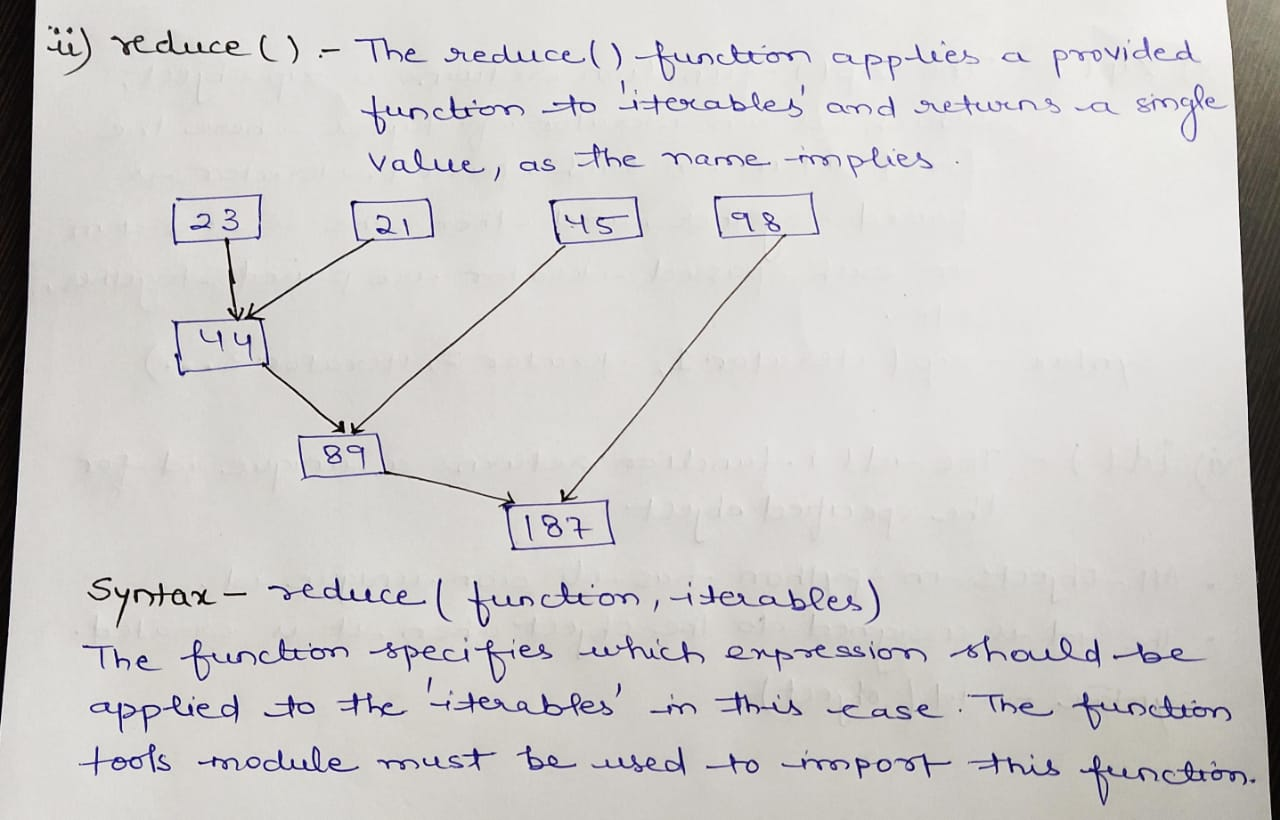 ii) reduce() :- The reduce() function applies a provided
function to 'iterables' and returns a single
value, as the name implies.
23 21 45 98
44
89
187
Syntax - reduce( function, iterables)
The function specifies which expression should be
applied to the 'iterables' in this case. The function
tools module must be used to import this function.